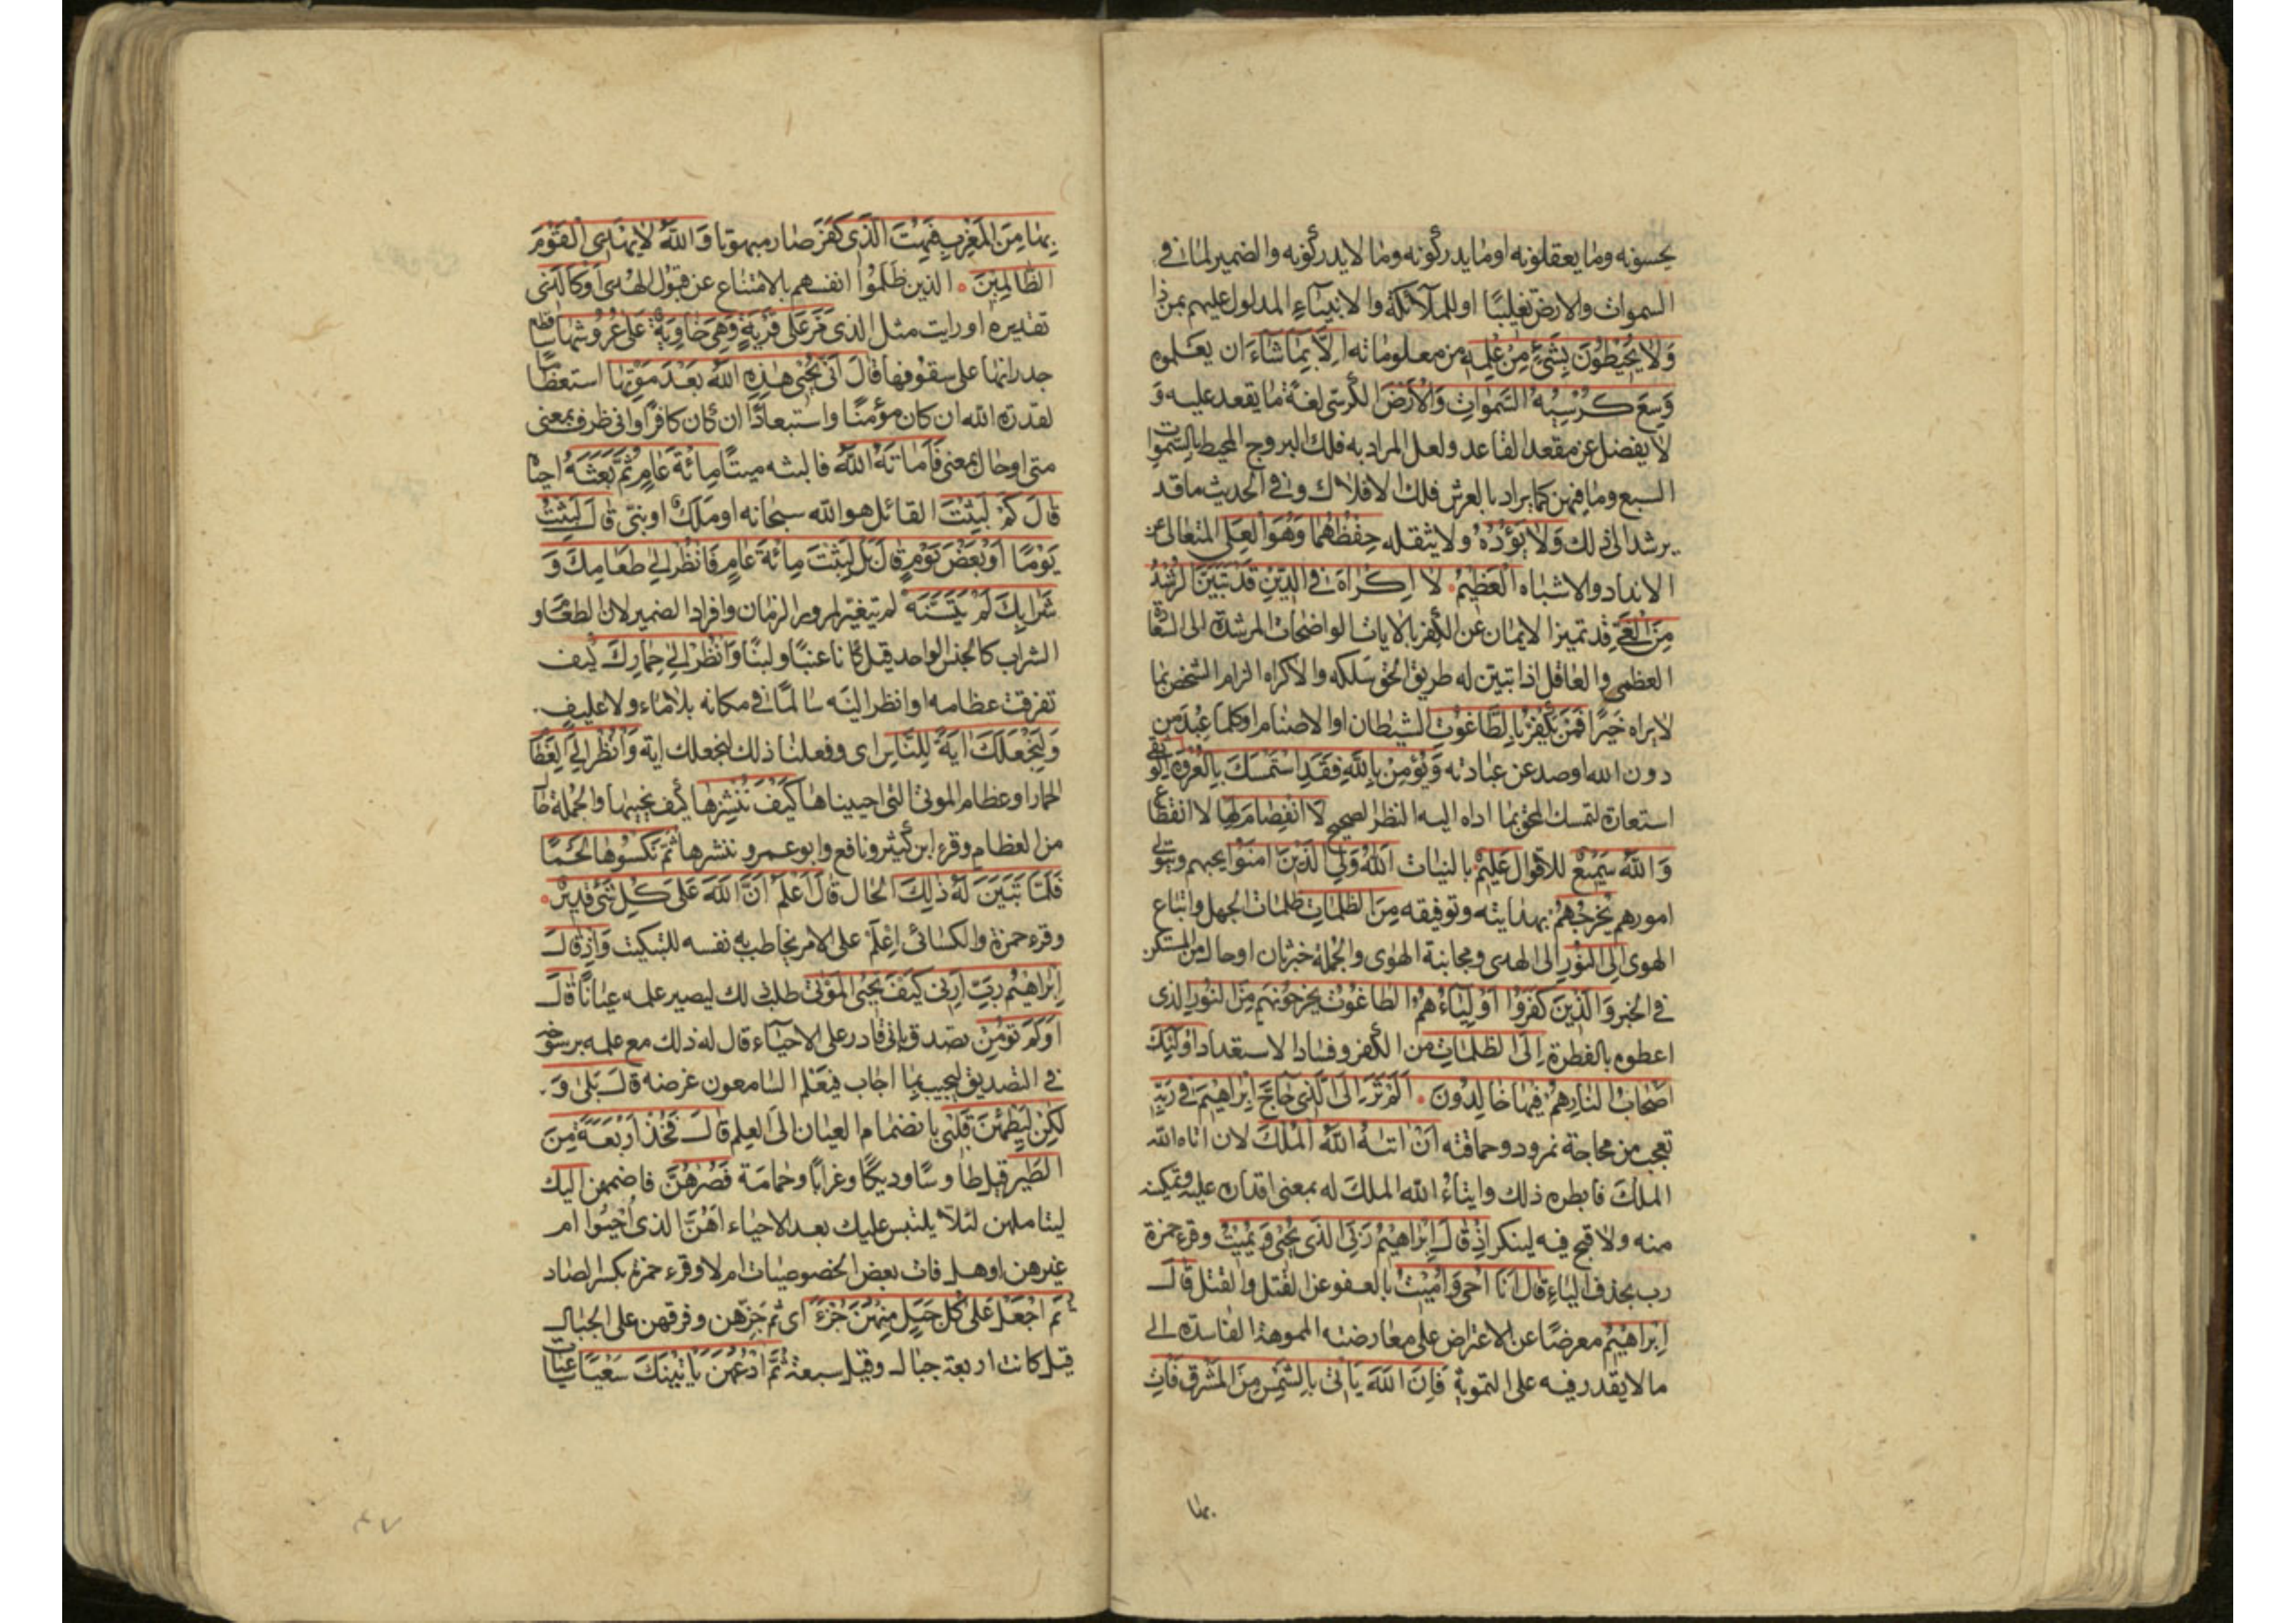 يحسونه وما يعقلونه او ما يدركونه وما لا يدركونه والضمير لما في
السموات والارض تغليبًا او للملآئكة والانبيآء المدلول عليهم بمن ذا
وَلٰا يُحيطُونَ بِشَيْءٍ مِنْ عِلْمِهِ من معلوماته اِلّٰا بِمٰا شٰاءَ ان يعلموه
وَسِعَ كُرْسِيُّهُ السَّمٰوٰاتِ وَالْاَرْضَ الكرسى لغة ما يقعد عليه و
لا يفضل عن مقعد القاعد ولعل المراد به فلك البروج المحيط بالسموات
السبع وما فيهن كما يراد بالعرش فلك الافلاك وفي الحديث ما قد
يرشد الى ذلك وَلٰا يَؤُدُهُ ولا يثقله حِفْظُهُمٰا وَهُوَ الْعَلِيُّ المتعالى عن
الانداد والاشباه الْعَظيمُ لٰا اِكْرٰاهَ فِي الدّينِ قَدْ تَبَيَّنَ الرُّشْدُ
مِنَ الْغَيِّ قد تميز الايمان عن الكفر بالايات الواضحات المرشدة الى السعادة
العظمى والعاقل اذا تبين له طريق الحق سلكه والاكراه الزام الشخص بما
لا يراه خيرًا فَمَنْ يَكْفُرْ بِالطّٰاغُوتِ الشيطان او الاصنام او كلما عبد من
دون الله او صد عن عبادته وَيُؤْمِنْ بِاللّٰهِ فَقَدِ اسْتَمْسَكَ بِالْعُرْوَةِ الْوُثْقٰى
استعارة لتمسك المحق بما اداه اليه النظر الصحيح لَا انْفِصٰامَ لَهٰا لا انقطاع
وَاللّٰهُ سَميعٌ للاقوال عَليمٌ بالنيات اَللّٰهُ وَلِيُّ الَّذينَ اٰمَنُوا يحبهم ويتولى
امورهم يُخْرِجُهُمْ بهدايته وتوفيقه مِنَ الظُّلُمٰاتِ ظلمات الجهل واتباع
الهوى اِلَى النُّورِ الى الهدى ومجانبة الهوى والجملة خبر ثان او حال من المستكن
في الخبر وَالَّذينَ كَفَرُوا اَوْلِيٰاءُهُمُ الطّٰاغُوتُ يُخْرِجُونَهُمْ مِنَ النُّورِ الذى
اعطوه بالفطرة اِلَى الظُّلُمٰاتِ من الكفر وفساد الاستعداد اُولٰئِكَ
اَصْحٰابُ النّٰارِ هُمْ فيهٰا خٰالِدُونَ اَلَمْ تَرَ اِلَى الَّذى حٰاجَّ اِبْرٰاهيمَ في رَبِّهِ
تعجب من محاجة نمرود وحماقته اَنْ اٰتٰيهُ اللّٰهُ الْمُلْكَ لان اتاه الله
الملك فابطره ذلك وايتاءُ الله الملك له بمعنى اقداره عليه وتمكينه
منه ولا قبح فيه لينكر اِذْ قٰالَ اِبْرٰاهيمُ رَبِّيَ الَّذى يُحْيى وَيُميتُ وقرء حمزة
رب بحذف الياء قٰالَ اَنَا اُحْيى وَاُميتُ بالعفو عن القتل والقتل قٰالَ
اِبْرٰاهيمُ معرضًا عن الاعتراض على معارضته المموهة الفاسدة الى
ما لا يقدر فيه على التمويه فَاِنَّ اللّٰهَ يَأْتى بِالشَّمْسِ مِنَ الْمَشْرِقِ فَأْتِ
بها
بِهٰا مِنَ الْمَغْرِبِ فَبُهِتَ الَّذى كَفَرَ صار مبهوتا وَاللّٰهُ لٰا يَهْدِى الْقَوْمَ
الظّٰالِمينَ الذين ظَلَمُوا انفسهم بالامتناع عن قبول الهدى اَوْ كَالَّذى
تقديره او رايت مثل الذى مَرَّ عَلٰى قَرْيَةٍ وَهِيَ خٰاوِيَةٌ عَلٰى عُرُوشِهٰا ساقطة
جدرانها على سقوفها قٰالَ اَنّٰى يُحْيى هٰذِهِ اللّٰهُ بَعْدَ مَوْتِهٰا استعظامًا
لقدرة الله ان كان مؤمنًا واستبعادًا ان كان كافرًا وانى ظرف بمعنى
متى او حال بمعنى فَاَمٰاتَهُ اللّٰهُ فالبثه ميتًا مِائَةَ عٰامٍ ثُمَّ بَعَثَهُ احياه
قٰالَ كَمْ لَبِثْتَ القائل هو الله سبحانه او ملك او نبى قٰالَ لَبِثْتُ
يَوْمًا اَوْ بَعْضَ يَوْمٍ قٰالَ بَلْ لَبِثْتَ مِائَةَ عٰامٍ فَانْظُرْ اِلٰى طَعٰامِكَ وَ
شَرٰابِكَ لَمْ يَتَسَنَّهْ لم يتغير لمرور الزمان وافراد الضمير لان الطعام و
الشراب كالجنس الواحد قيل كانا عنبًا ولبنًا وَانْظُرْ اِلٰى حِمٰارِكَ كيف
تفرقت عظامه او انظر اليه سالمًا في مكانه بلا ماء ولا عليف
وَلِنَجْعَلَكَ اٰيَةً لِلنّٰاسِ اى وفعلنا ذلك لنجعلك اية وَانْظُرْ اِلَى الْعِظٰامِ
الحمار او عظام الموتى التى احييناها كَيْفَ نُنْشِزُهٰا كيف نحييها والجملة حال
من العظام وقرء ابن كثير ونافع وابو عمرو ننشرها ثُمَّ نَكْسُوهٰا لَحْمًا
فَلَمّٰا تَبَيَّنَ لَهُ ذٰلِكَ الحال قٰالَ اَعْلَمُ اَنَّ اللّٰهَ عَلٰى كُلِّ شَيْءٍ قَديرٌ
وقرء حمزة والكسائى اِعْلَمْ على الامر يخاطب به نفسه للتبكيت وَاِذْ قٰالَ
اِبْرٰاهيمُ رَبِّ اَرِنى كَيْفَ تُحْيِى الْمَوْتٰى طلب ذلك ليصير علمه عيانًا قٰالَ
اَوَلَمْ تُؤْمِنْ تصدق بانى قادر على الاحيآء قال له ذلك مع علمه برسوخه
في التصديق ليجيب بما اجاب فيعلم السامعون غرضه قٰالَ بَلٰى وَ
لٰكِنْ لِيَطْمَئِنَّ قَلْبى بانضمام العيان الى العلم قٰالَ فَخُذْ اَرْبَعَةً مِنَ
الطَّيْرِ قيل طاوسًا وديكًا وغرابًا وحمامة فَصُرْهُنَّ فاضممهن اليك
ليتاملهن لئلا يلتبس عليك بعد الاحياء اَهُنَّ الذى اُحْيُوا ام
غيرهن او هل فات بعض الخصوصيات ام لا وقرء حمزة بكسر الصاد
ثُمَّ اجْعَلْ عَلٰى كُلِّ جَبَلٍ مِنْهُنَّ جُزْءً اى ثم جَزِّهن وفرقهن على الجبال
قيل كانت اربعة جبال وقيل سبعة ثُمَّ ادْعُهُنَّ يَأْتينَكَ سَعْيًا ساعيات